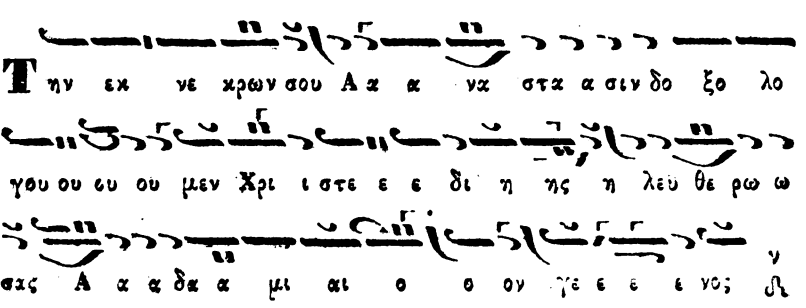 Την εκ νε κρων σου Α α α να στα α σιν δο ξο λο
γου ου ου ου μεν Χρι ι στε ε ε δι η ης η λευ θε ρω ω
σας Α α α δα α μι αι ο ο ον γε ε ε ε νος